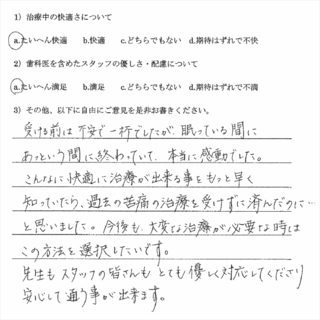 1）治療中の快適さについて
a.たいへん快適 b.快適 c.どちらでもない d.期待はずれで不快
2）歯科医を含めたスタッフの優しさ・配慮について
a.たいへん満足 b.満足 c.どちらでもない d.期待はずれで不満
3）その他、以下に自由にご意見を是非お書きください。
受ける前は不安で一杯でしたが、眠っている間に
あっという間に終わっていて、本当に感動でした。
こんなに快適に治療が出来る事をもっと早く
知っていたら、過去の苦痛の治療を受けずに済んだのに…
と思いました。今後も、大変な治療が必要な時は
この方法を選択したいです。
先生もスタッフの皆さんもとても優しく対応してくださり
安心して通う事が出来ます。